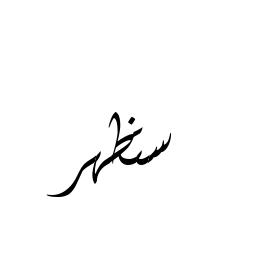 سنظهر